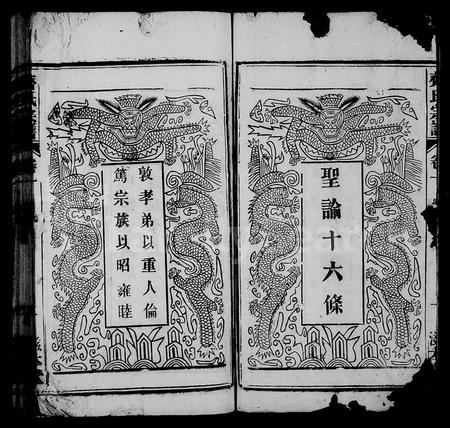 聖諭十六條
敦孝弟以重人倫
篤宗族以昭雍睦